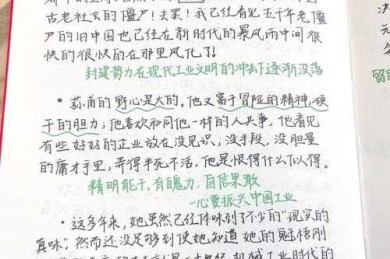 古老社会的僵尸！去罢！我已经看见五千年老僵尸
的旧中国也已经在新时代的暴风雨中间很
快的很快的在那里风化了！
封建势力在现代工业文明的冲击下逐渐没落
·荪甫的野心是大的，他又富于冒险的精神，硬
干的胆力；他喜欢和同他一样的人共事，他看见
有些好好的企业放在没见识，没手段，没胆量
的庸才手里，弄得半死不活，他是恨得什么似的。
精明能干，有魄力，自信果敢
一心要振兴中国工业
·这多年来，她虽然已经体味到了不少的“现实的
真味”，然而还没足够到使她知道她的魁梧刚